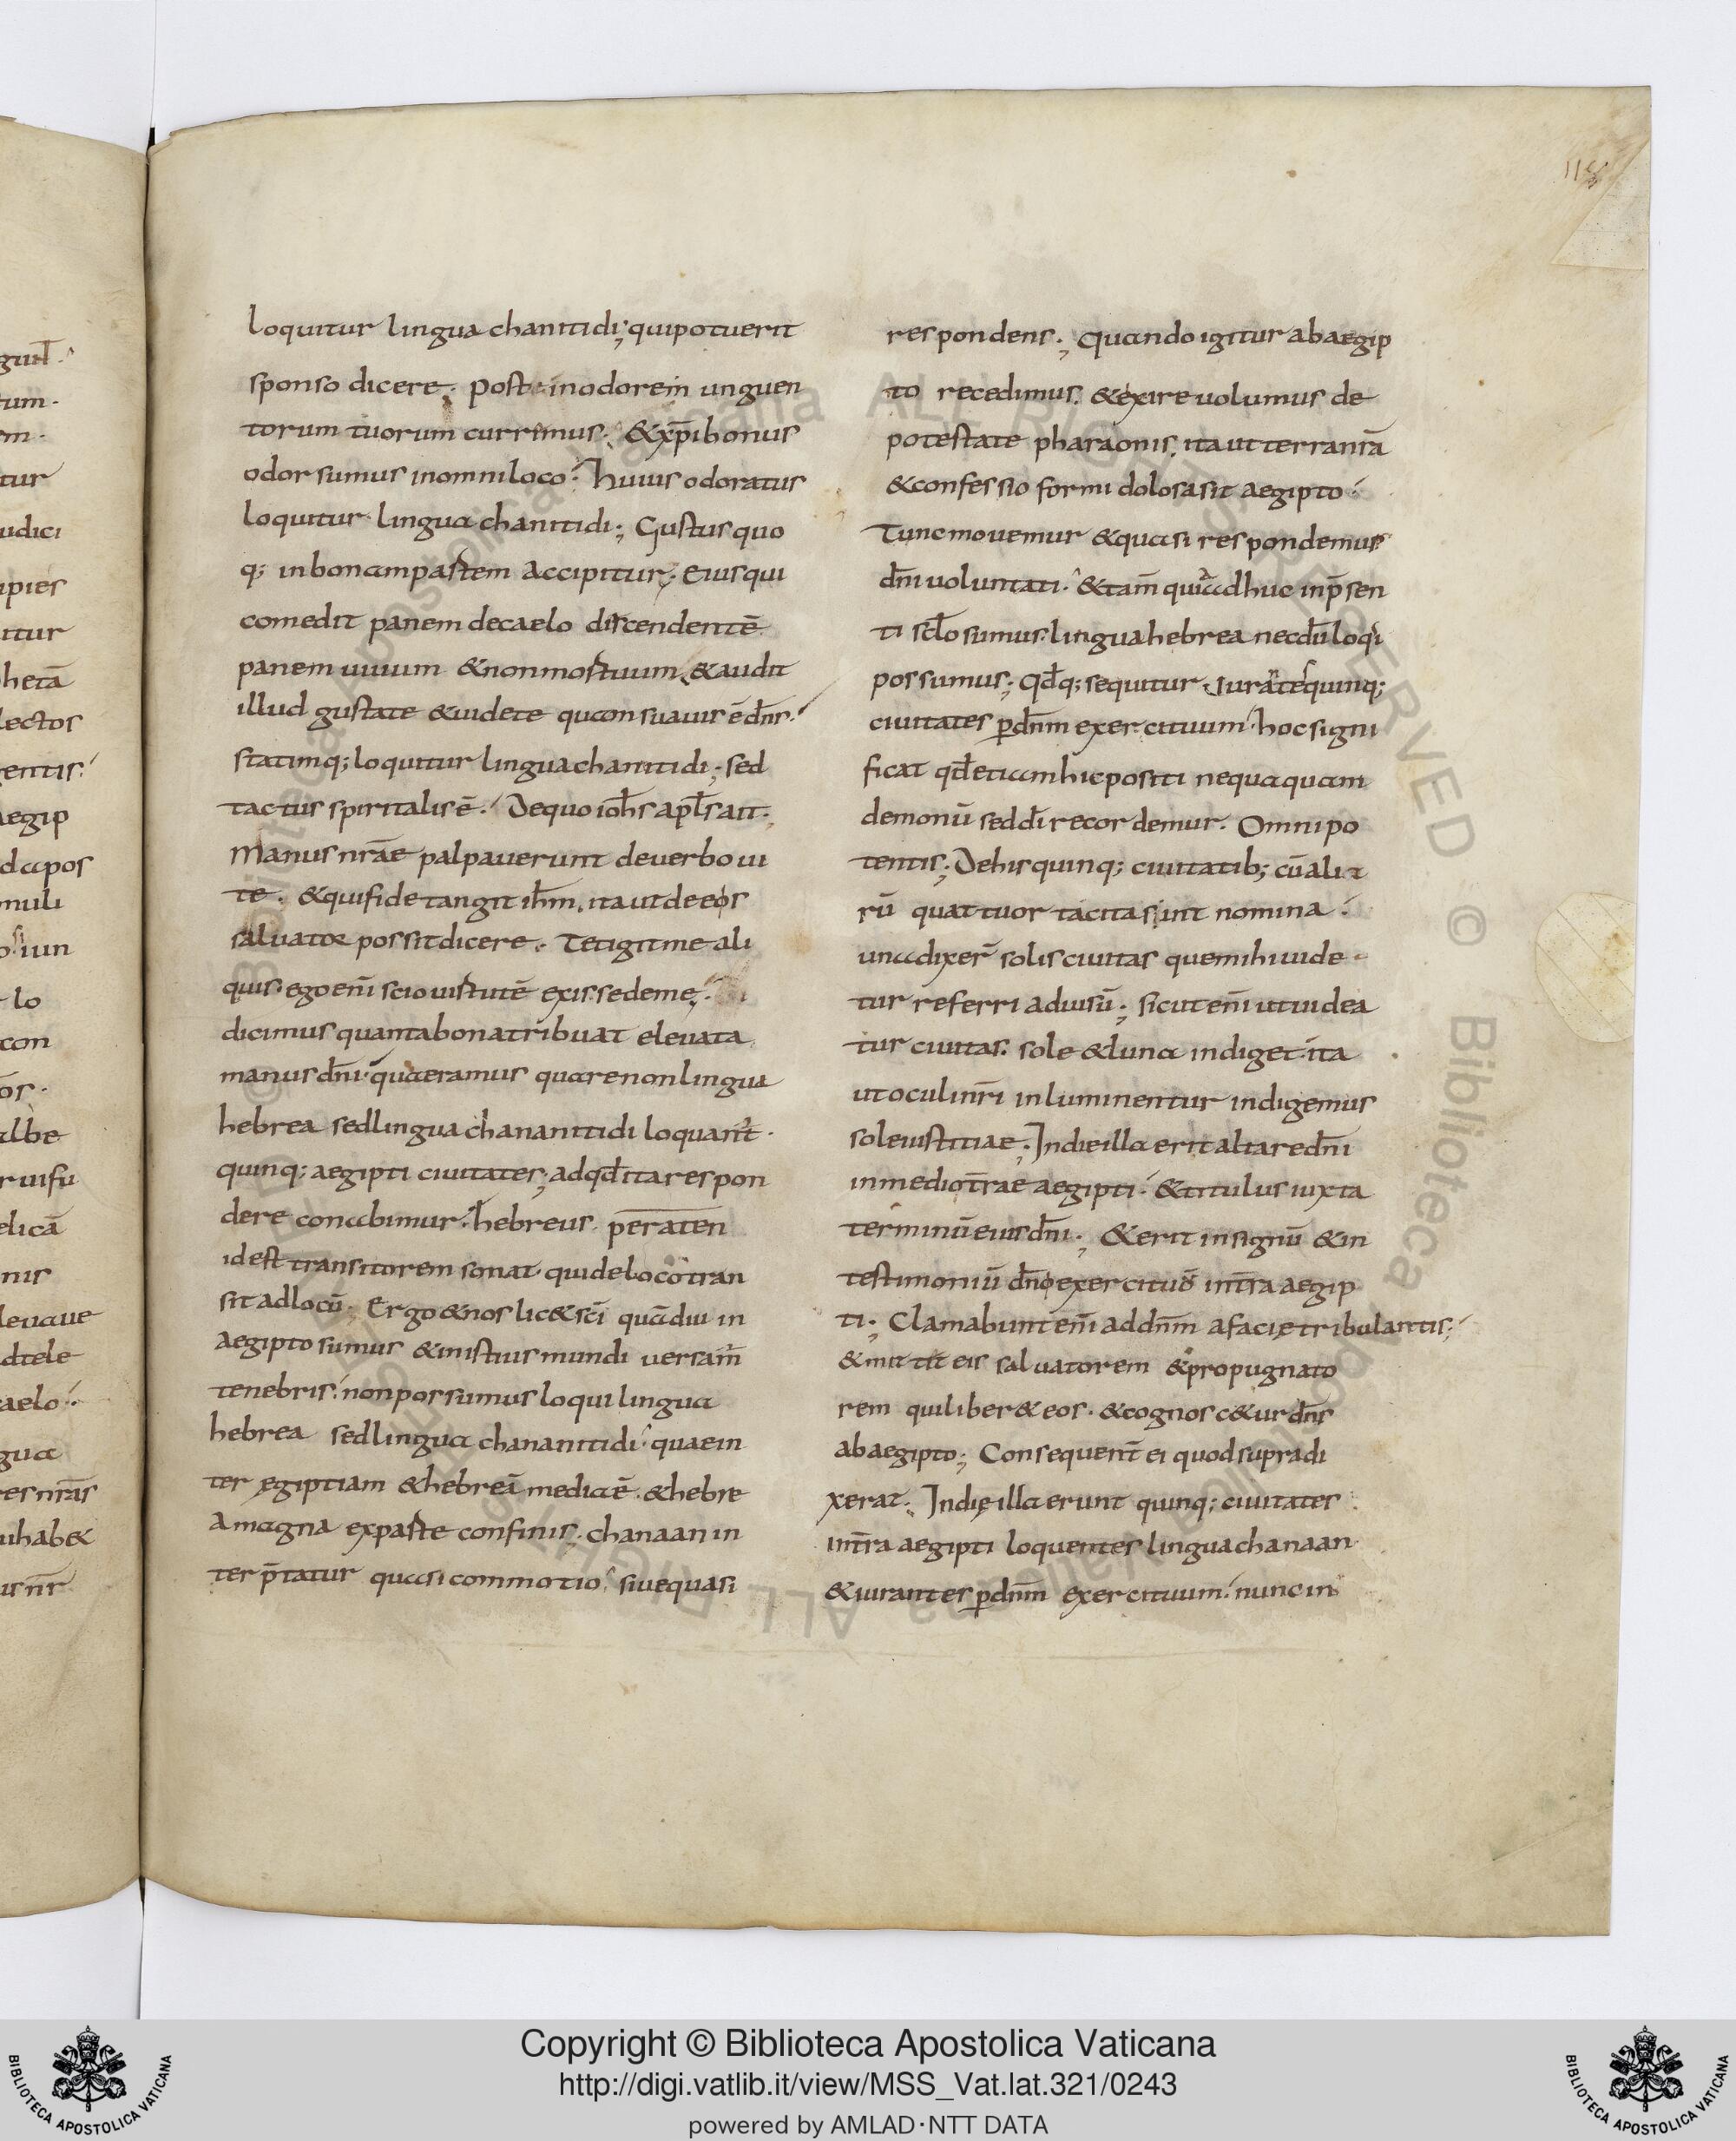 loquitur lingua chanitidi; qui potuerit
sponso dicere. post in odorem unguen
torum tuorum currimus. & xp̄i bonus
odor sumus in omni loco. huius odoratus
loquitur lingua chanitidi; Gustus quo
q; in bonam pastem accipitur. eius qui
comedit panem de caelo discendentē
panem uiuum & non mostuum. & audit
illud gustate & uidete quam suauis ē dn̄s.
statimq; loquitur lingua chanitidi; sed
tactus spiritalis ē. De quo ioh̄s apl̄s ait.
Manus nrāe palpauerunt de uerbo ui
te. & qui fide tangit ih̄m. ita ut de eos
saluator possit dicere. Tetigit me ali
quis. ego enī scio uistutē exisse de me.
dicimus quanta bona tribuat eleuata
manus dn̄i. quaeramus quare non lingua
hebrea sed lingua chananitidi loquant̄.
quinq; aegipti ciuitates; ad qd̄ ita respon
dere conabimur. hebreus. peraten
id est transitorem sonat. qui de loco tran
sit ad locū. Ergo & nos lic& sc̄i quādiu in
aegipto sumus & in istius mundi uersam̄
tenebris. non possumus loqui lingua
hebrea sed lingua chananitidi. quae in
ter egiptiam & hebreā media ē. & hebre
a magna ex paste confinis. chanaan in
ter p̄tatur quasi commotio. siue quasi
respondens; Quando igitur ab aegip
to recedimus. & exire uolumus de
potestate pharaonis. ita ut terra nr̄a
& confessio formidolosa sit aegipto.
Tunc mouemur & quasi respondemus
dn̄i uoluntati. & tam̄ quia adhuc in p̄sen
ti sc̄lo sumus. lingua hebrea necdū loqi
possumus; Qd̄q; sequitur iurātes quinq;
ciuitates p̄ dn̄m exercituum. hoc signi
ficat qd̄ etiam hic positi nequaquam
demonū sed dī recordemur. Omnipo
tentis; De his quinq; ciuitatib; cū alia
rū quattuor tacita sint nomina.
una dixer̄ solis ciuitas que mihi uide
tur referri ad uisū; sicut enī ut uidea
tur ciuitas. sole & luna indiget. ita
ut oculi nr̄i inluminentur indigemus
sole iustitiae; In die illa erit altare dn̄i
in medio tr̄ae aegipti. & titulus iuxta
terminū eius dn̄i; & erit in signū & in
testimoniū dn̄o exercituū in tr̄a aegip
ti; Clamabunt enī ad dn̄m a facie tribulantis;
& mittit eis saluatorem & propugnato
rem qui liber& eos. & cognosc&ur dn̄s
ab aegipto; Consequent̄ ei quod supra di
xerat. In die illa erunt quinq; ciuitates
in tr̄a aegipti loquentes lingua chanaan
& iurantes p̄ dn̄m exercituum. nunc in
Copyright © Biblioteca Apostolica Vaticana
http://digi.vatlib.it/view/MSS_Vat.lat.321/0243
powered by AMLAD·NTT DATA